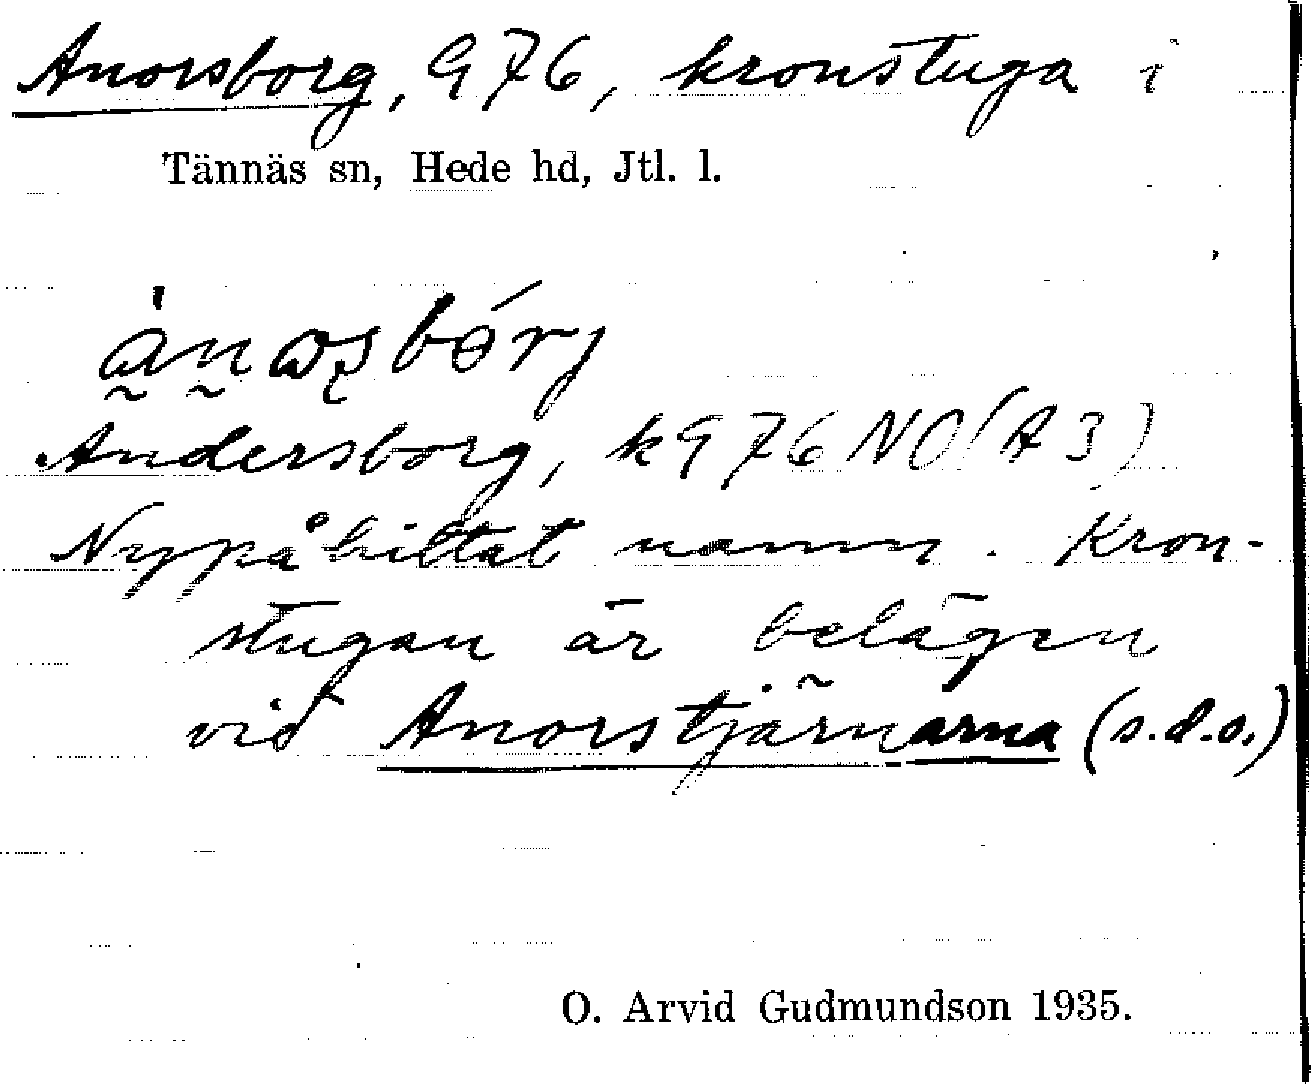 Anorsborg, G76, kronstuga i
Tännäs sn, Hede hd, Jtl. l.
Andersborg, k G76 NO (A3)
Nypåhittat namn. Kron-
stugan är belägen
vid Anorstjärnarna (s.d.o.)
O. Arvid Gudmundson 1935.